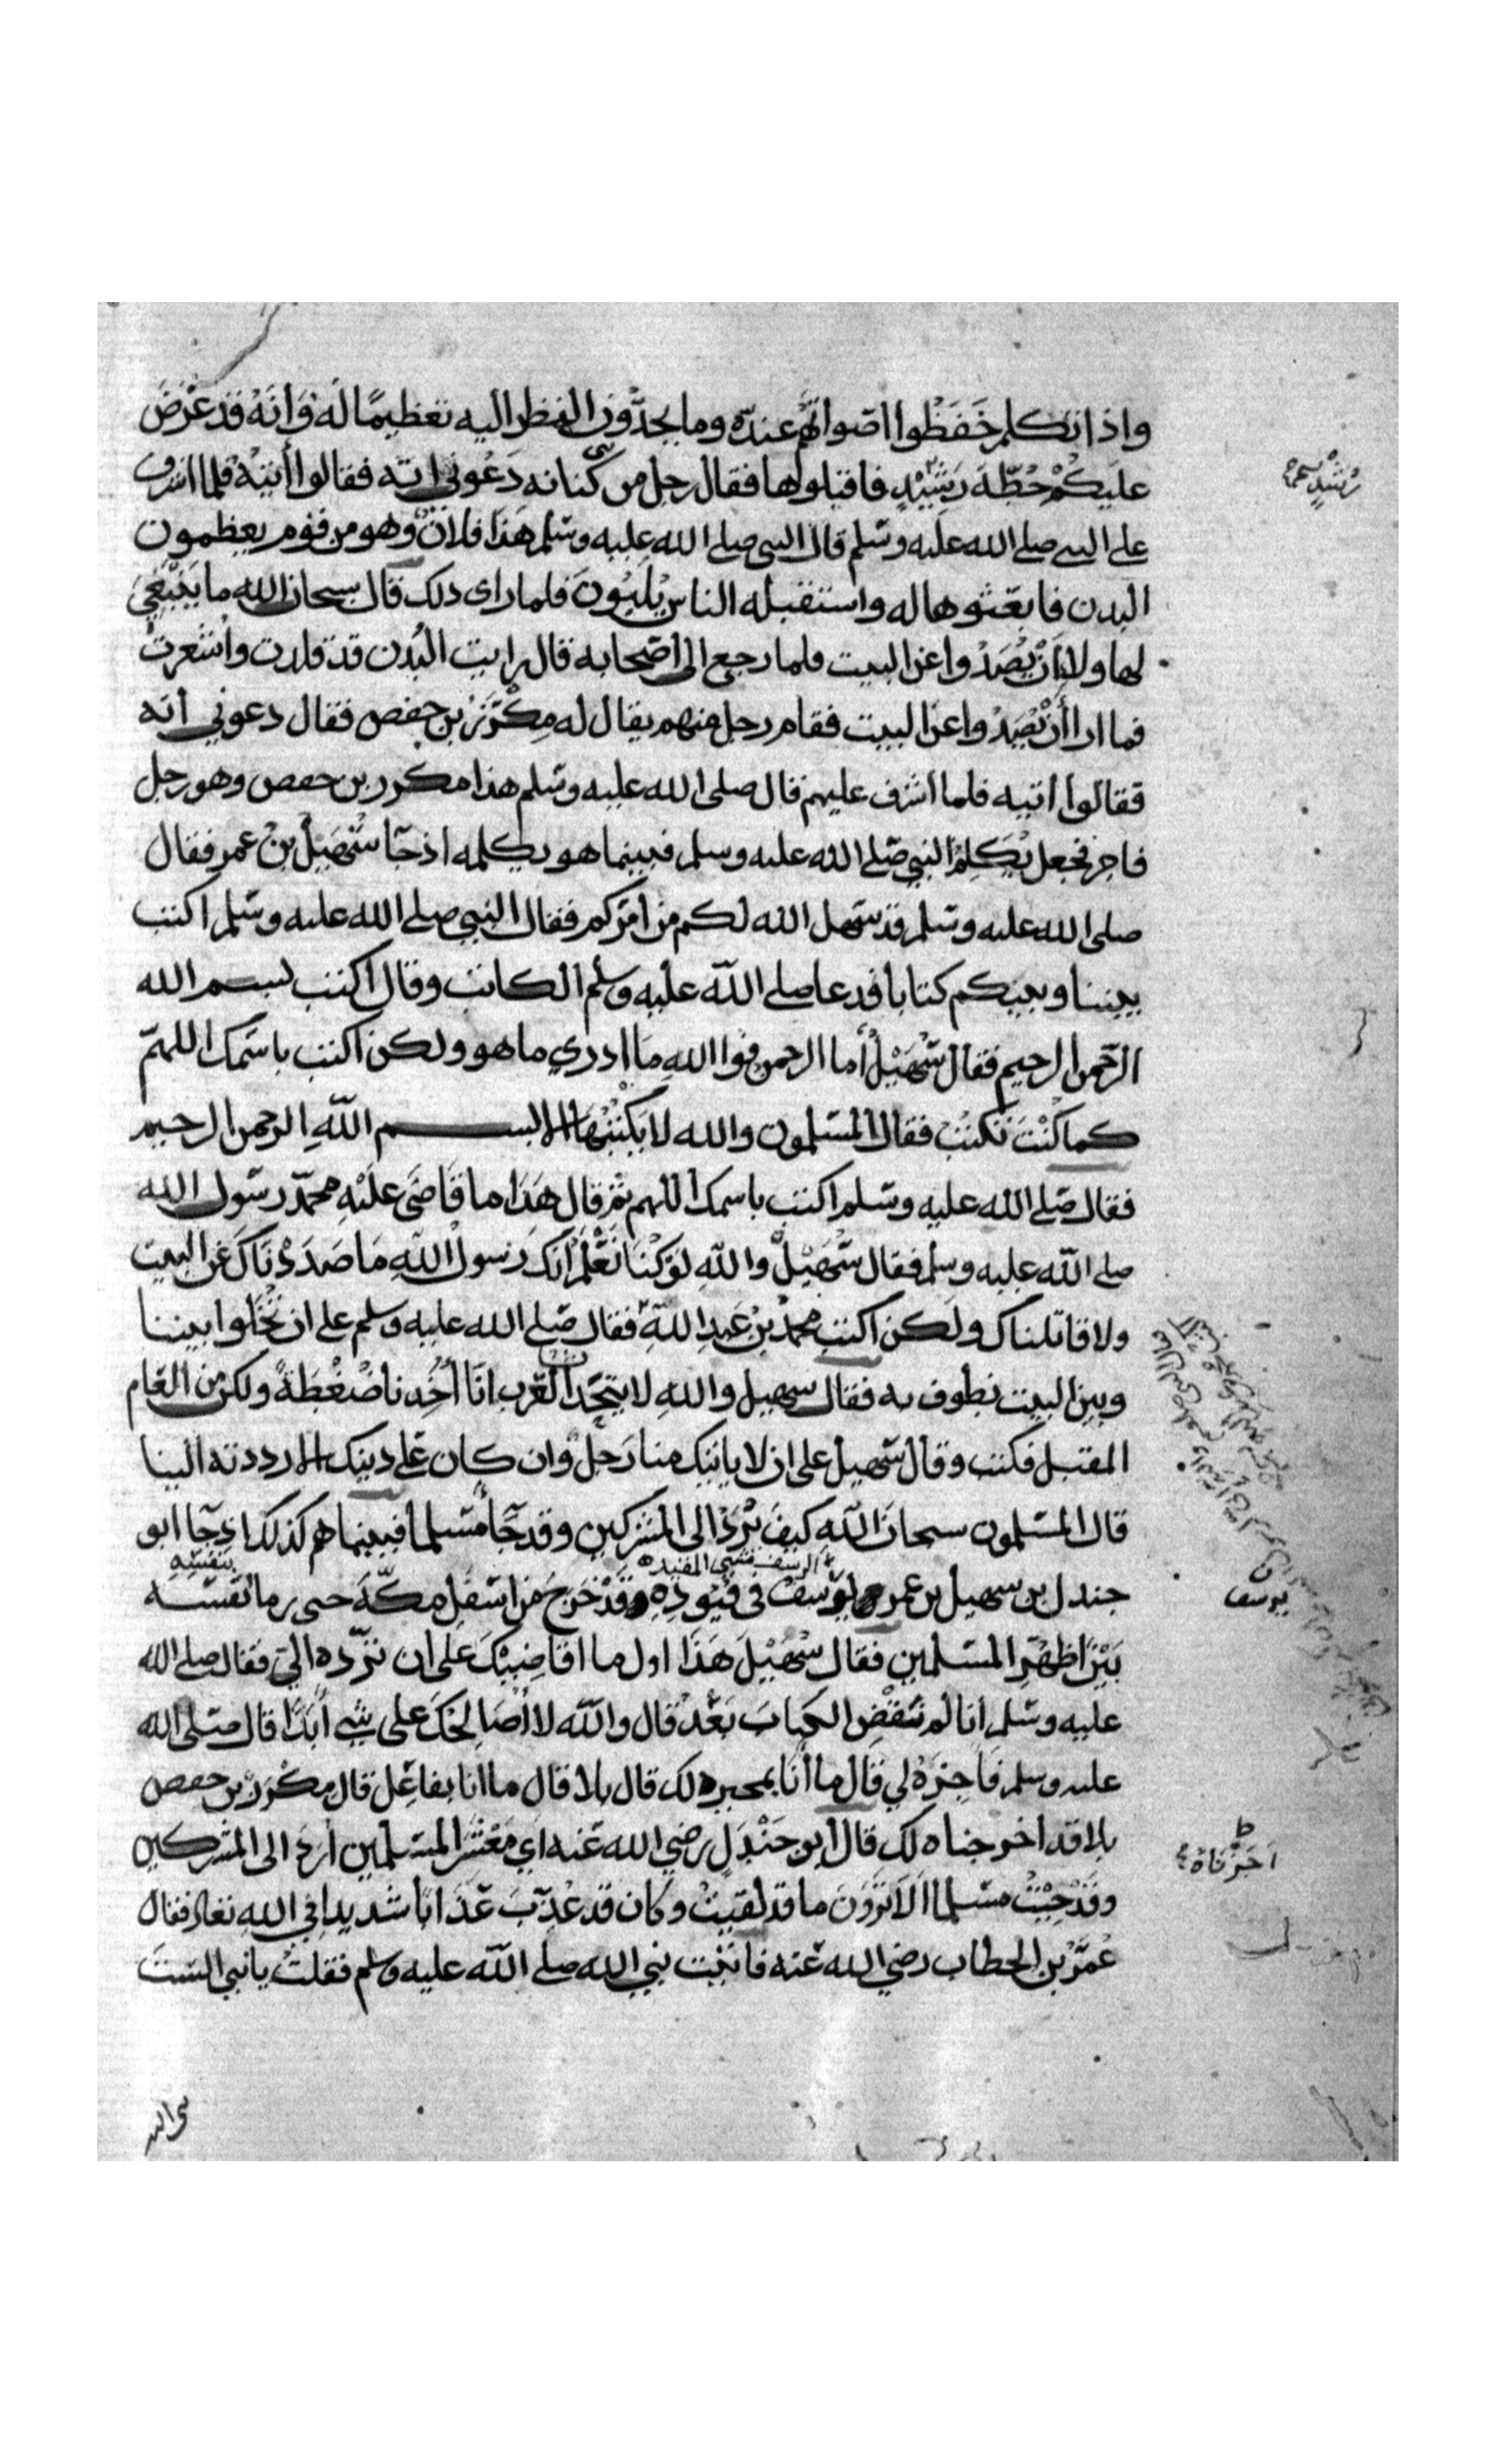 واذا تكلم خَفَظُوا اصواتهم عنده وما يحدّون النظر اليه تعظيمًا له وَانهُ قد عَرَضَ
عليكمْ خُطّة رَشِيْدٍ فاقبلوها فقال رجل من كنانه دَعُوني اته فقالوا أيتهْ فلما اشرف
على النبي صلى الله عليه وسلم قال النبي صلى الله عليه وسلم هَذا فلانٌ وهو من قوم يعظمون
البدن فابعثوها له واستقبله الناس يُلَبُوْنَ فلما راى ذلك قال سبحان الله ما يَنْبَغِيَ
لها ولا ان يُصَدْوا عن البيت فلما رجع الى اصحابه قال رايت البُدن قد قلدت واشعرت
فما ارا أنْ يُصَدْوا عن البيت فقام رجل منهم يقال له مِكْرَزُ بن حفص فقال دعوني اته
فقالوا اتيه فلما اشرف عليهم قال صلى الله عليه وسلم هذا مكرر بن حفص وهو رجل
فاجر فجعل يُكَلِمُ النبي صلى الله عليه وسلم فبينما هو يكلمه اذ جآ سُهَيْلُ بْنُ عمر فقال
صلى الله عليه وسلم قد سهل الله لكم من امركم فقال النبي صلى الله عليه وسلم اكتب
بيننا وبينكم كتابا فدعا صلى اللّه عليه وسلم الكاتب وقال اكتب بسم الله
الرّحمن الرحيم فقال سُهَيْلُ أما الرحمن فوا اللهِ مَا ادري ما هو ولكن اكتب باسَمك اللهمّ
كما كنْتَ تكتبْ فقال المسلمون والله لا يَكْتُبْهَا الا بسم اللّهِ الرحمن الرحيم
فقال صَلى الله عليه وسلم اكتب باسمك اللهم ثم قال هَذَا ما قَاضَى عليْهِ محمدّ رسول الله
صلى اللّه عليه وسلم فقال سُهَيْلٌ واللّهِ لوْ كُنَا نَعْلَمُ انكَ رَسولُ اللّهِ مَا صَدَدْنَاكَ عَن البيت
ولا قاتلناك ولكن اكتب محمدُ بْنُ عَبدِ اللّهِ فقال صَلى الله عليه وسلم على ان تُخَلوا بيننا
وبين البيت نطوف به فقال سهيل واللهِ لا يتحدّا العَرب انّا أُخِدنا ضُغْطَةً ولكن من العَام
المقبل فكتب وقال سُهيل على ان لا ياتيك منا رَجلٌ وان كان عَلى دينك الا رددته الينا
قال المسلمون سبحانَ اللّهِ كيفَ يُرَدْ الى المشركين وقد جآ مُسلما فبينما هم كذلك اذ جآ ابو
الرسف مشي المقيد
بنفسِهِ
جندل بن سهيل بن عمر يوْسُفُ في قيودِهِ وَقَدْ خَرَجَ مِن اسْفلِ مكّةَ حتى رما نفسَه
بَيْنَ اظهُرِ المسلمين فقال سُهَيْلَ هَذَا اول ما اقاضيْكَ على ان تردّه اليَّ فقال صلى الله
عليه وسلم انا لم نَقْضِ الكتابَ بَعْدُ قال واللّه لا اُصَالحكَ على شي أبَدًا قال صَلى الله
عليه وسلم فَاجِزْهُ لي قال ما أنَا بمجيره لك قال بلا قال ما انا بفاعِل قال مِكْرَرُ بن حفص
بلا قد اخرجناه لك قال ابو جَنْدَلٍ رضي الله عَنه اي مَعْشَرَ المسلمين أردّ الى المشركين
وقَدْ جِيْتُ مسلما اَلا تَرَوْنَ ما قد لقيتْ وكان قد عُذِّبَ عَذَابًا شديدا في اللّهِ تعالى فقال
عُمَرُ بن الخطاب رضي الله عَنه فاتيت نبي الله صلى اللّه عليه وسلم فقلتُ يا نبي الستَ
رُشدٍ
يرسف
ط
اجَزْناهُ
نبي الله